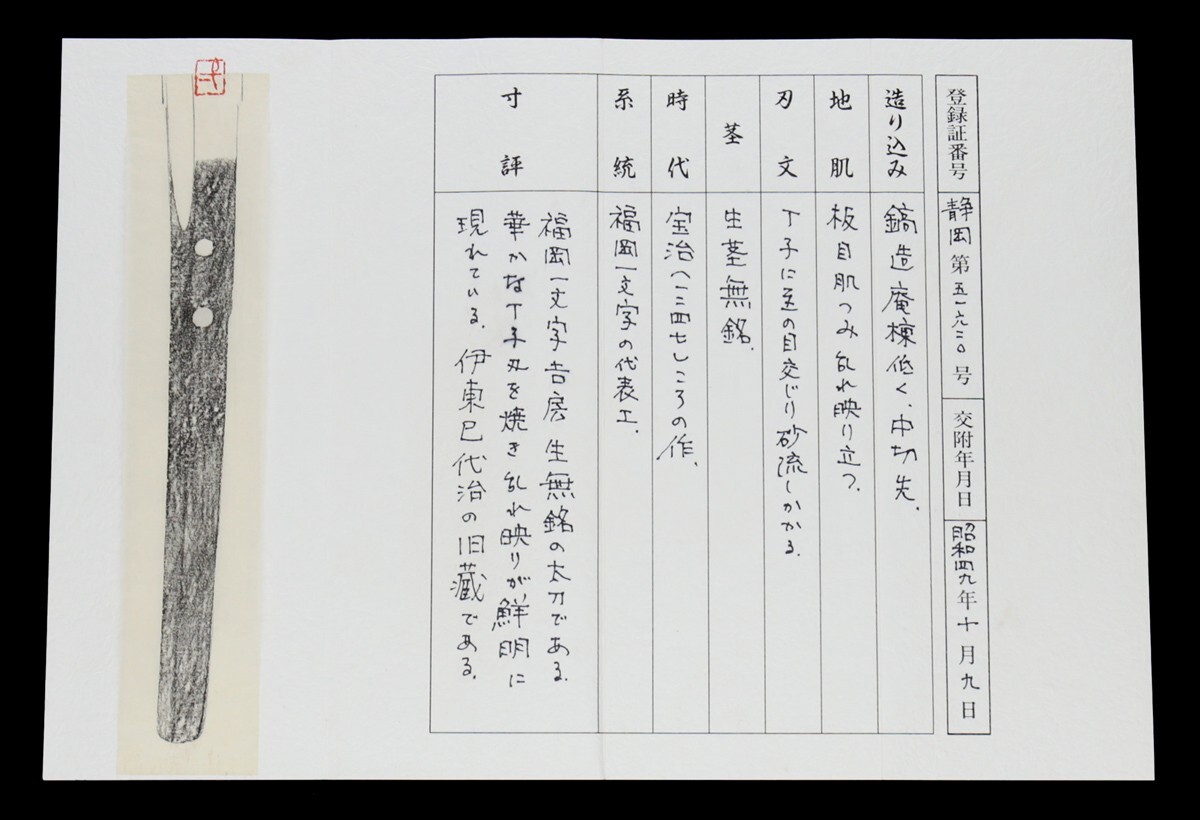 登録証番号 静岡 第 五一六二〇 号 交附年月日 昭和四九年十月九日
造り込み 鎬造庵棟低く、中切先、
地肌 板目肌つみ乱れ映り立つ、
刃文 丁子に互の目交じり砂流しかかる、
茎 生茎無銘、
時代 宝治(一二四七)ころの作、
系統 福岡一文字の代表工、
寸評 福岡一文字吉房 生無銘の太刀である、
華かな丁子刃を焼き乱れ映りが鮮明に
現れている、伊東巳代治の旧蔵である、